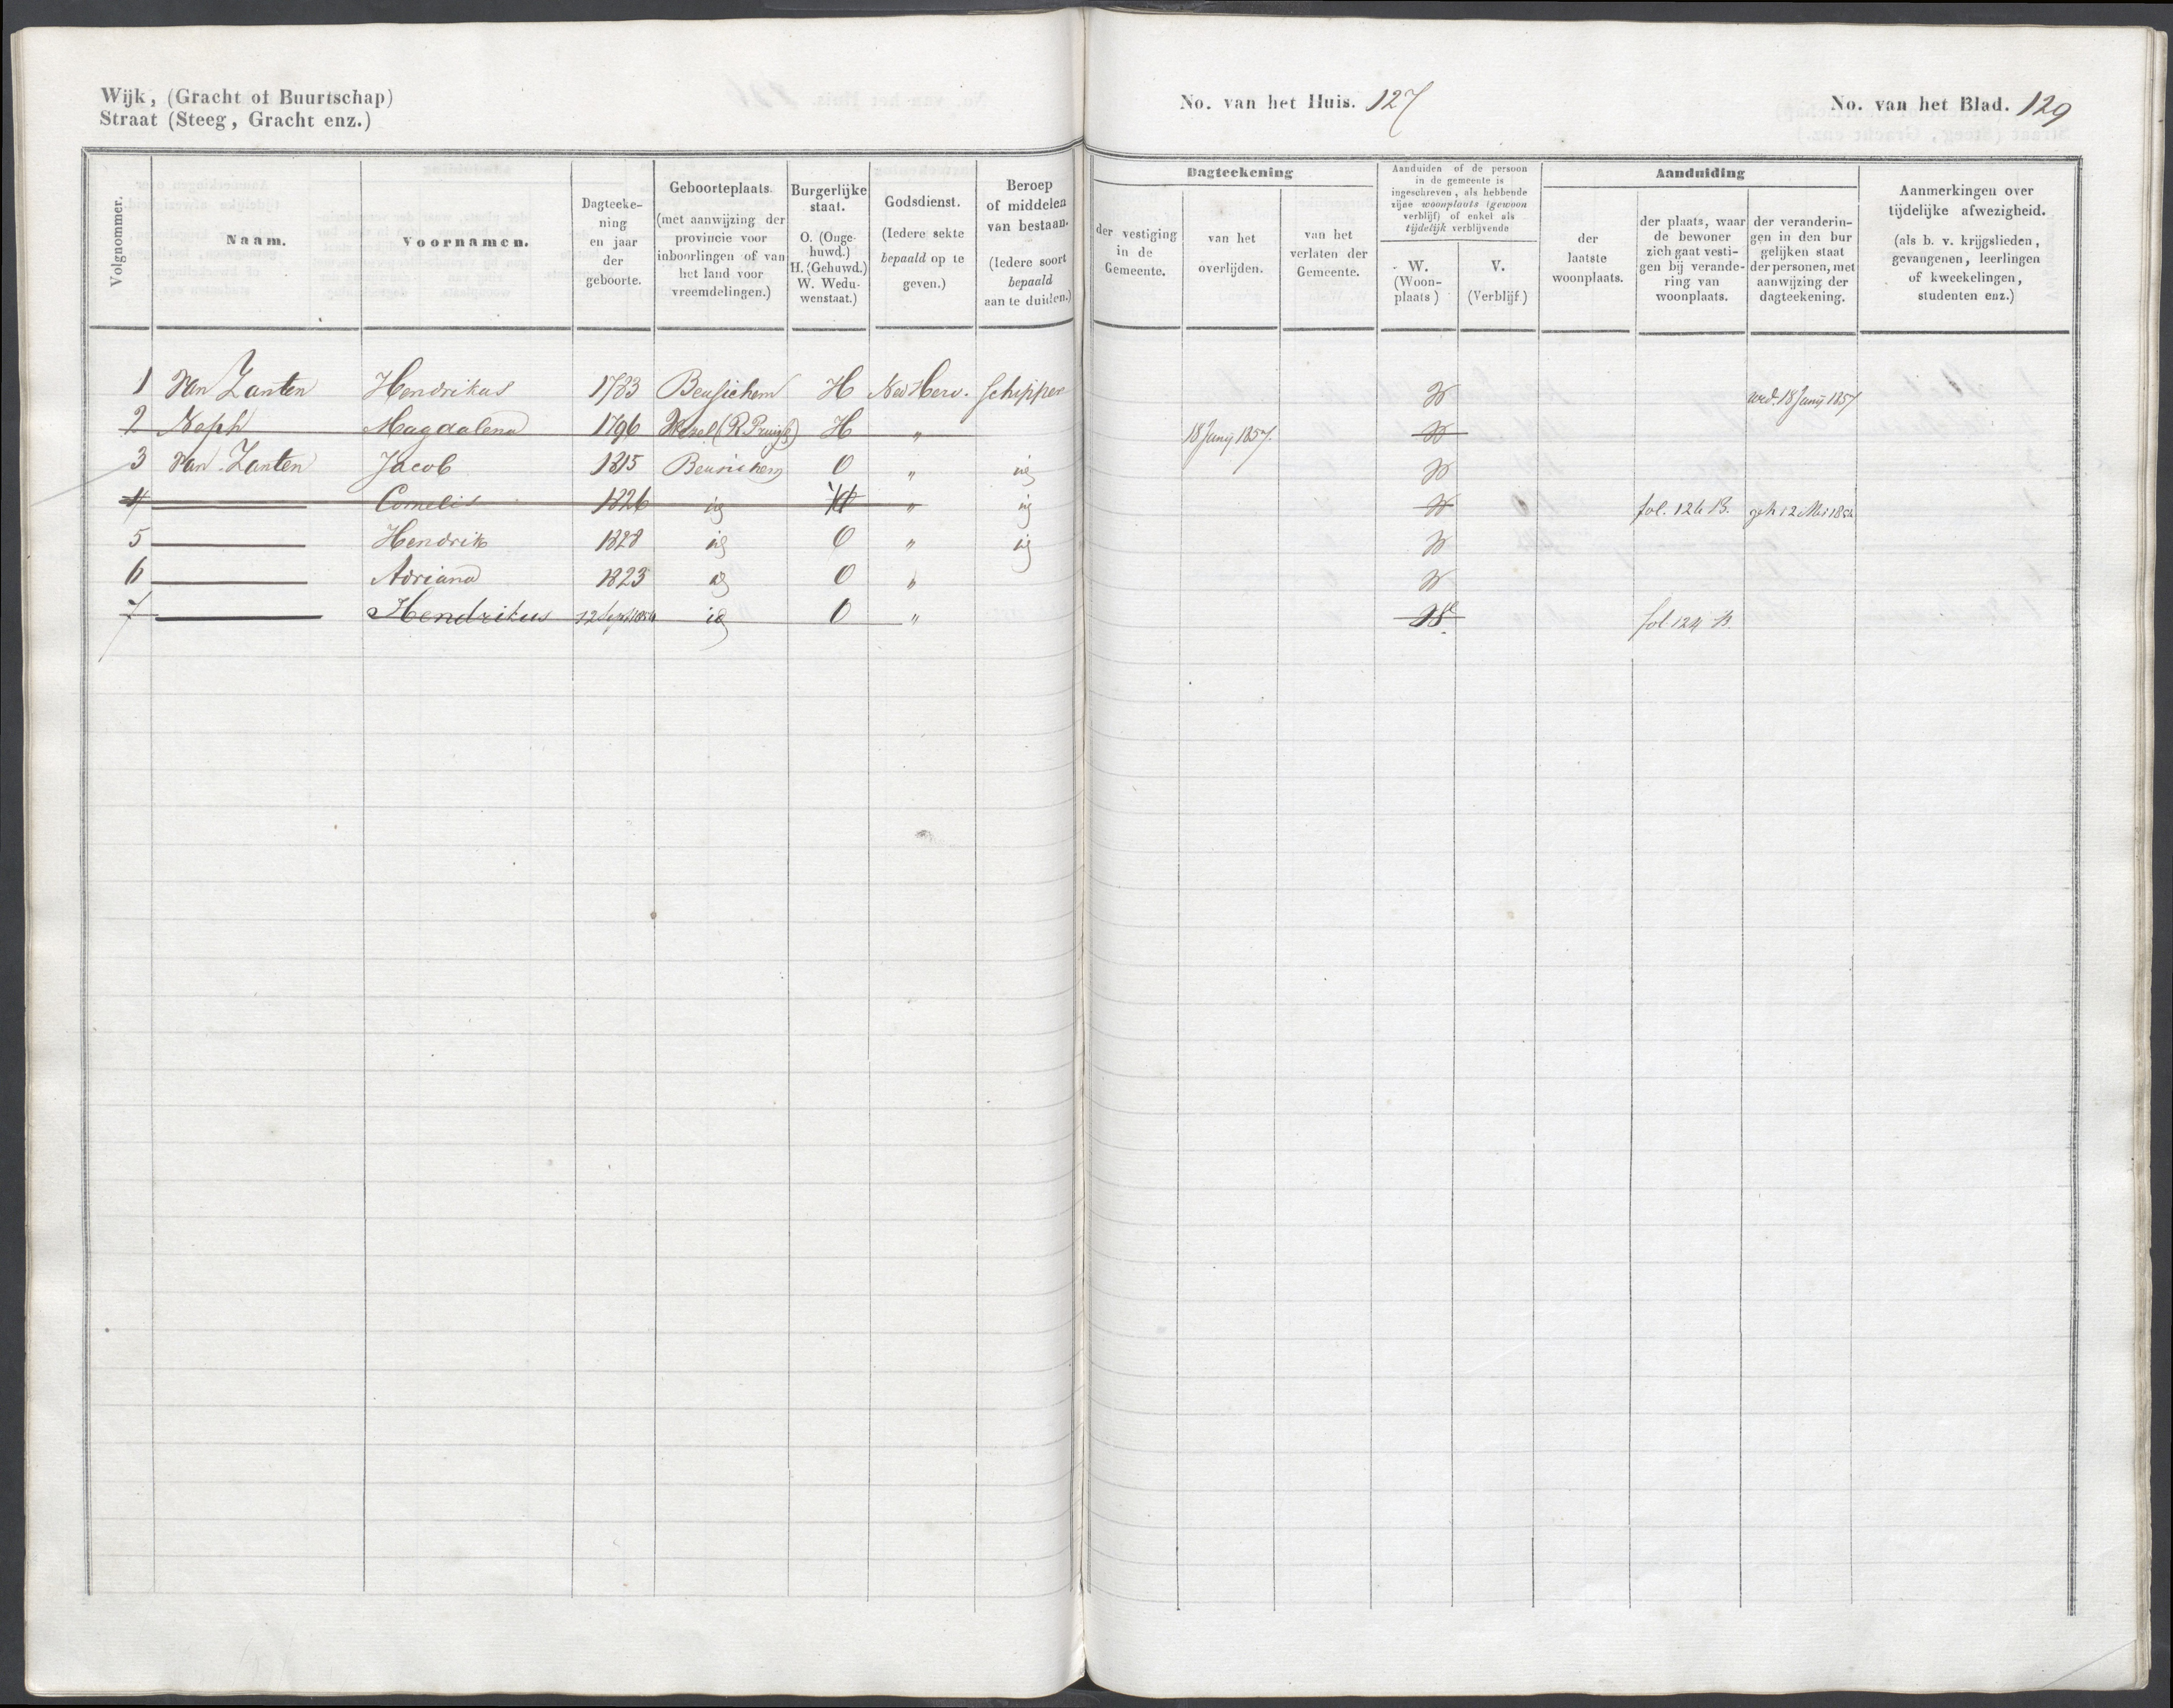 Wijk, (Gracht of Buurtschap)
Straat (Steeg, Gracht enz.)
No. van het Huis. 127
No. van het Blad. 129
Volgnommer.
Naam.
Voornamen.
Dagteeke-
ning
en jaar
der
geboorte.
Geboorteplaats.
(met aanwijzing der
provincie voor
inboorlingen of van
het land voor
vreemdelingen.)
Burgerlijke
staat.
O. (Onge-
huwd.)
H. (Gehuwd.)
W. Wedu-
wenstaat.)
Godsdienst.
(Iedere sekte
bepaald op te
geven.)
Beroep
of middelen
van bestaan.
(Iedere soort
bepaald
aan te duiden.)
Dagteekening
der vestiging
in de
Gemeente.
van het
overlijden.
van het
verlaten der
Gemeente.
Aanduiden of de persoon
in de gemeente is
ingeschreven, als hebbende
zijne woonplaats (gewoon
verblijf) of enkel als
tijdelijk verblijvende
W.
(Woon-
plaats)
V.
(Verblijf)
Aanduiding
der
laatste
woonplaats.
der plaats, waar
de bewoner
zich gaat vesti-
gen bij verande-
ring van
woonplaats.
der veranderin-
gen in den bur
gelijken staat
der personen, met
aanwijzing der
dagteekening.
Aanmerkingen over
tijdelijke afwezigheid.
(als b. v. krijgslieden,
gevangenen, leerlingen
of kweekelingen,
studenten enz.)
1 Van Zanten Hendrikus 1783 Beusichem H Ned Herv. Schipper W wed. 18 Junij 1857
2 Neph Magdalena 1796 Wezel (R. Pruiss) H " 18 Junij 1857. W
3 Van Zanten Jacob 1815 Beusichem O " id W
4 Cornelis 1826 id " id W fol. 124 B. geh 12 Mei 1854
5 Hendrik 1828 id O " id W
6 Adriana 1823 id O " W
7 Hendrikus 12 Sept 1854 id O " W fol. 124 B.